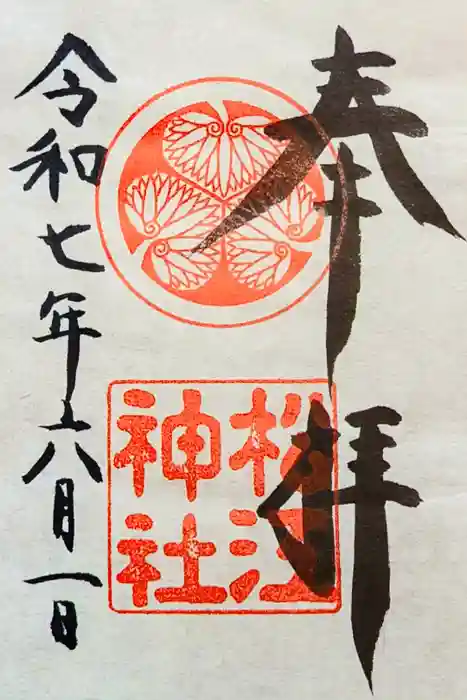 奉拝
松江
神社
令和七年六月一日